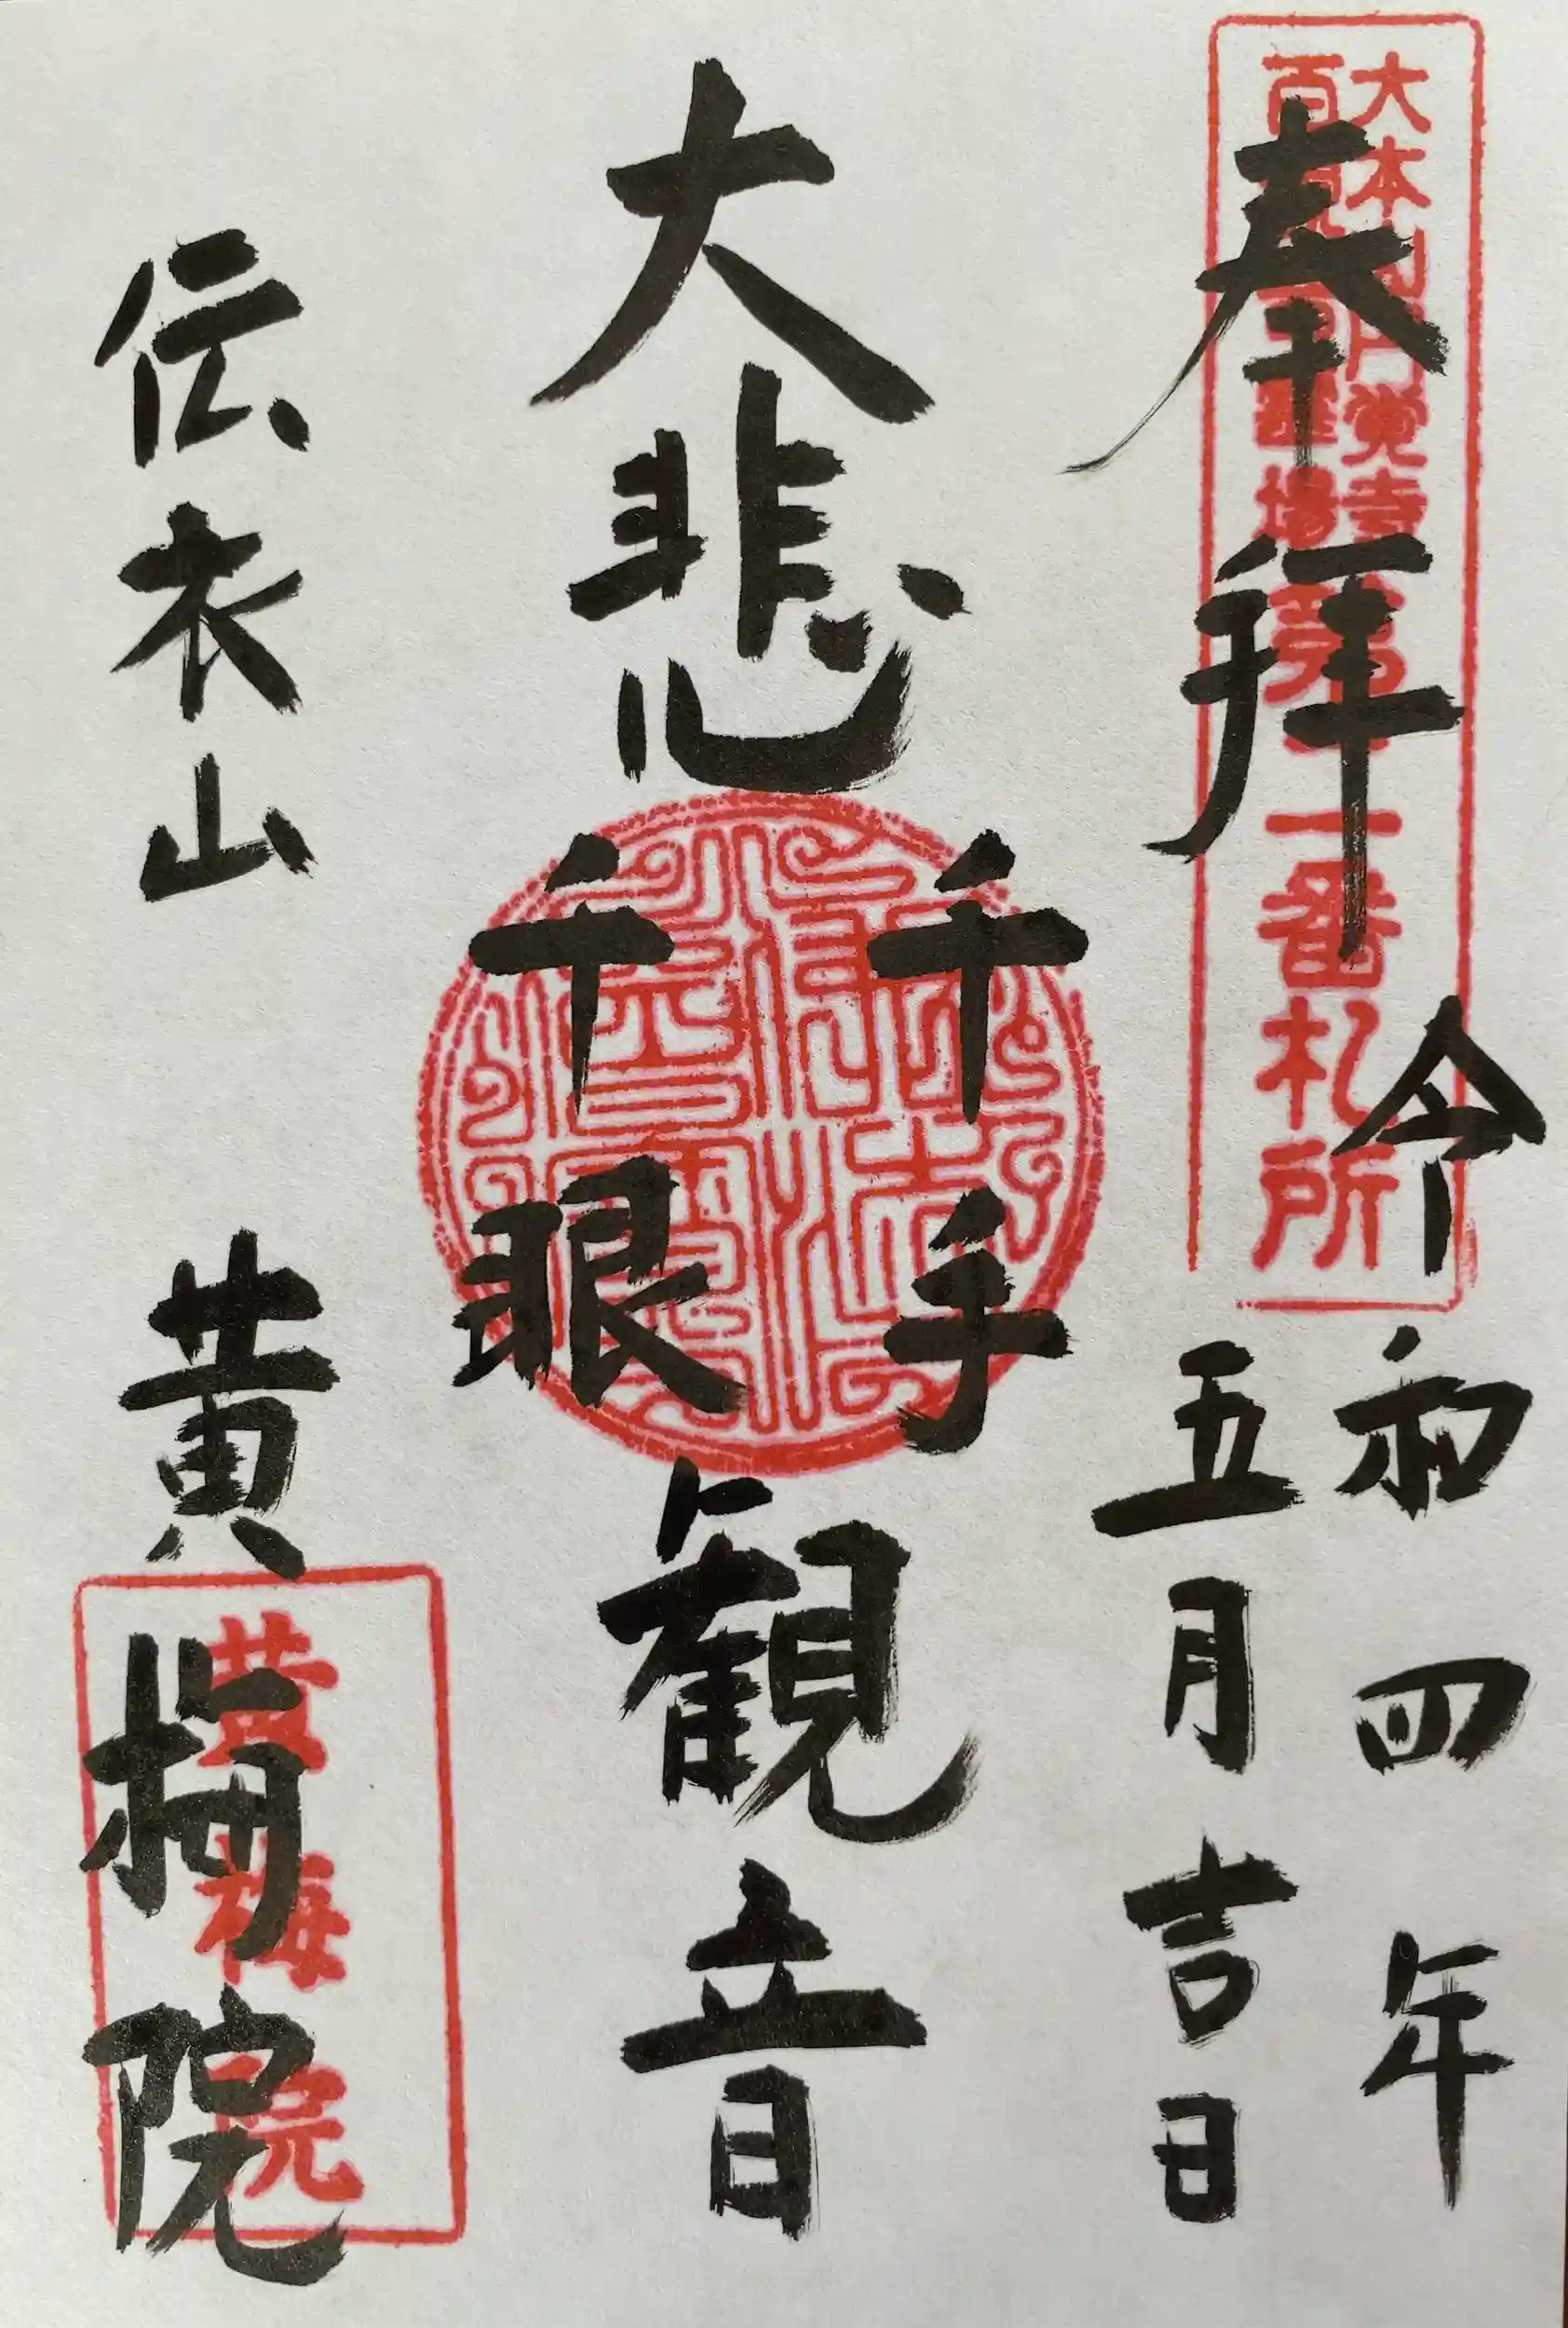 奉拝
令和四年
五月吉日
大悲
千手
千眼
観音
伝衣山
黄梅院
大本山円覚寺
第一番札所
黄梅院